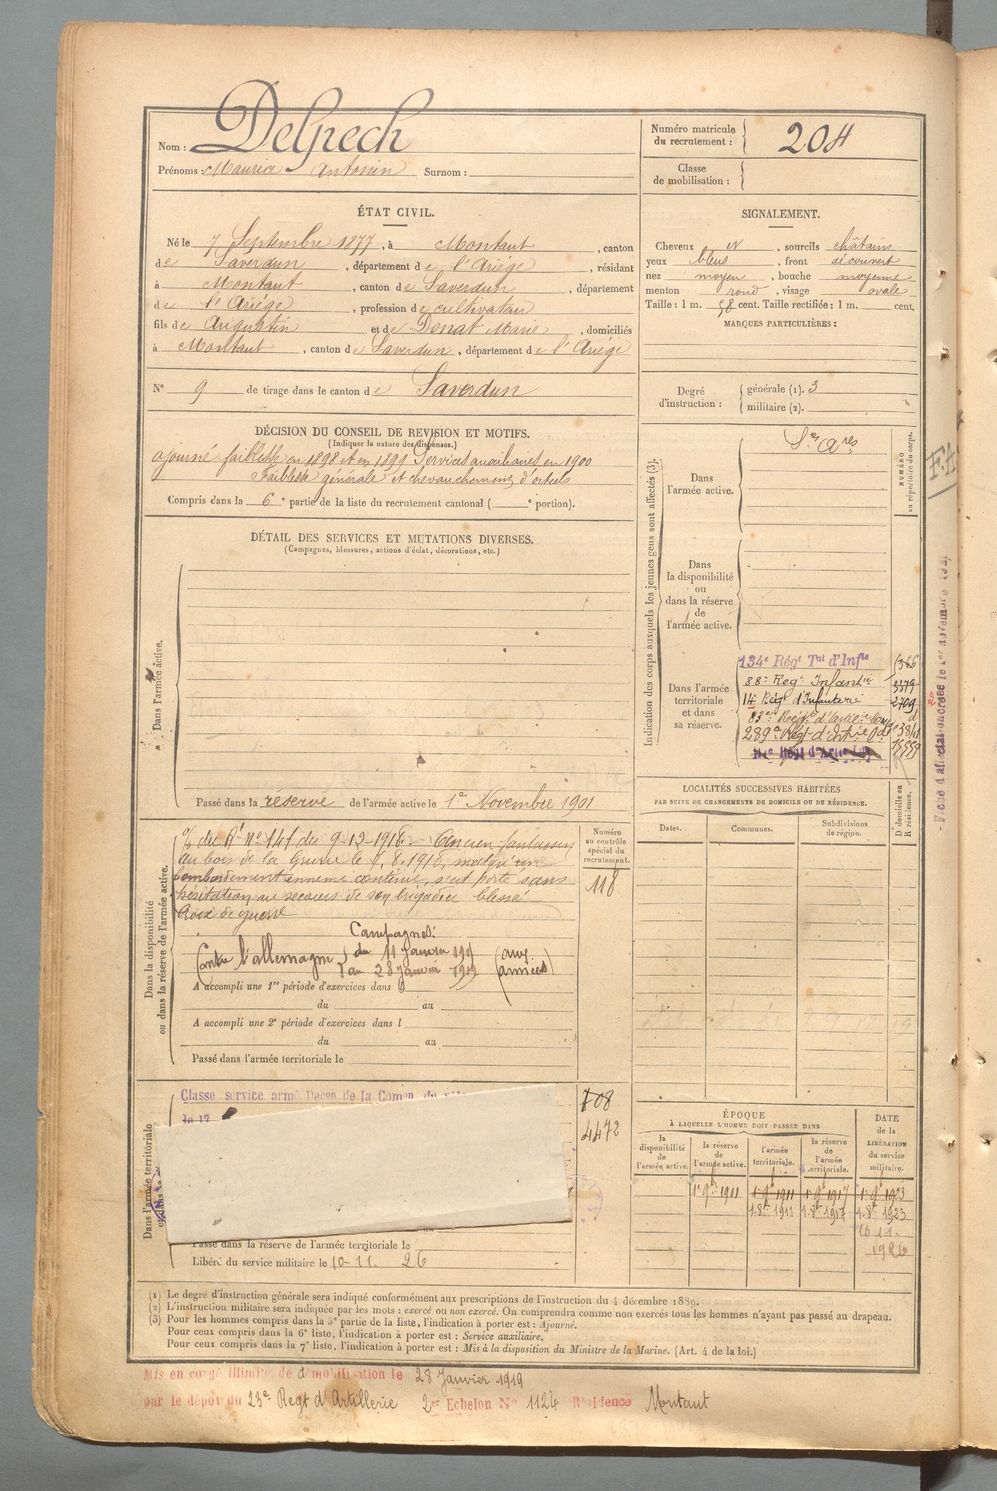 Nom : Delpech
Prénoms : Maurice Antonin Surnom :
Numéro matricule du recrutement : 204
Classe de mobilisation :
ÉTAT CIVIL.
Né le 7 Septembre 1877, à Montaut, canton
de Saverdun, département de l'Ariège, résidant
à Montaut, canton de Saverdun, département
de l'Ariège, profession de cultivateur
fils de Augustin et de Donat Marie, domiciliés
à Montaut, canton de Saverdun, département de l'Ariège
N° 9 de tirage dans le canton de Saverdun
SIGNALEMENT.
Cheveux N, sourcils châtains
yeux bleus, front découvert
nez moyen, bouche moyenne
menton rond, visage ovale
Taille : 1 m. 58 cent. Taille rectifiée : 1 m. cent.
MARQUES PARTICULIÈRES :
Degré d'instruction : générale (1). 3
militaire (2).
DÉCISION DU CONSEIL DE REVISION ET MOTIFS.
(Indiquer la nature des dispenses.)
ajourné faiblesse en 1898 et en 1899 Services auxiliaires en 1900
Faiblesse générale et chevauchement d'orteils
Compris dans la 6e partie de la liste du recrutement cantonal ( e portion).
DÉTAIL DES SERVICES ET MUTATIONS DIVERSES.
(Campagnes, blessures, actions d'éclat, décorations, etc.)
Dans l'armée active.
Passé dans la réserve de l'armée active le 1er Novembre 1901
Indication des corps auxquels les jeunes gens sont affectés (3).
NUMÉRO au répertoire du corps.
Dans l'armée active.
Sce Ares
Dans la disponibilité ou dans la réserve de l'armée active.
Dans l'armée territoriale et dans sa réserve.
134e Régt Tal d'Infie
88e Regt Infantie
3379
14 Régt d'Infanterie
2709
83e Régt d'artie
289e Régt d'artie
LOCALITÉS SUCCESSIVES HABITÉES
PAR SUITE DE CHANGEMENTS DE DOMICILE OU DE RÉSIDENCE.
Dates. Communes. Subdivisions de région. D domicile ou R résidence.
Dans la disponibilité ou dans la réserve de l'armée active.
Numéro au contrôle spécial du recrutement.
118
du 9-12-1916 Ancien fantassin
au bois de la Gruerie le 8.1916, malgré un
bombardement ennemi continu, s'est porté sans
hésitation au secours de son brigadier blessé
Croix de guerre
Campagnes:
Contre l'allemagne du 11 Janvier
au 28 Janvier 1919 (aux armées)
A accompli une 1re période d'exercices dans
du au
A accompli une 2e période d'exercices dans l
du au
Passé dans l'armée territoriale le
Dans l'armée territoriale
Classe service armé Décon de la Comon du
le 17
708
4472
Passé dans la réserve de l'armée territoriale le
Libéré du service militaire le 10-11. 26
ÉPOQUE
À LAQUELLE L'HOMME DOIT PASSER DANS
la disponibilité de l'armée active. la réserve de l'armée active. l'armée territoriale. la réserve de l'armée territoriale.
DATE de la LIBÉRATION du service militaire.
1 9bre 1901 1 9bre 1911 1 9bre 1917 1 9bre 1923
1926
(1) Le degré d'instruction générale sera indiqué conformément aux prescriptions de l'instruction du 4 décembre 1889.
(2) L'instruction militaire sera indiquée par les mots : exercé ou non exercé. On comprendra comme non exercés tous les hommes n'ayant pas passé au drapeau.
(3) Pour les hommes compris dans la 5e partie de la liste, l'indication à porter est : Ajourné.
Pour ceux compris dans la 6e liste, l'indication à porter est : Service auxiliaire.
Pour ceux compris dans la 7e liste, l'indication à porter est : Mis à la disposition du Ministre de la Marine. (Art. 4 de la loi.)
Mis en congé illimité de démobilisation le 28 Janvier 1919
par le dépôt du 23e Regt d'Artillerie Echelon N° 1124 Résidence Montaut